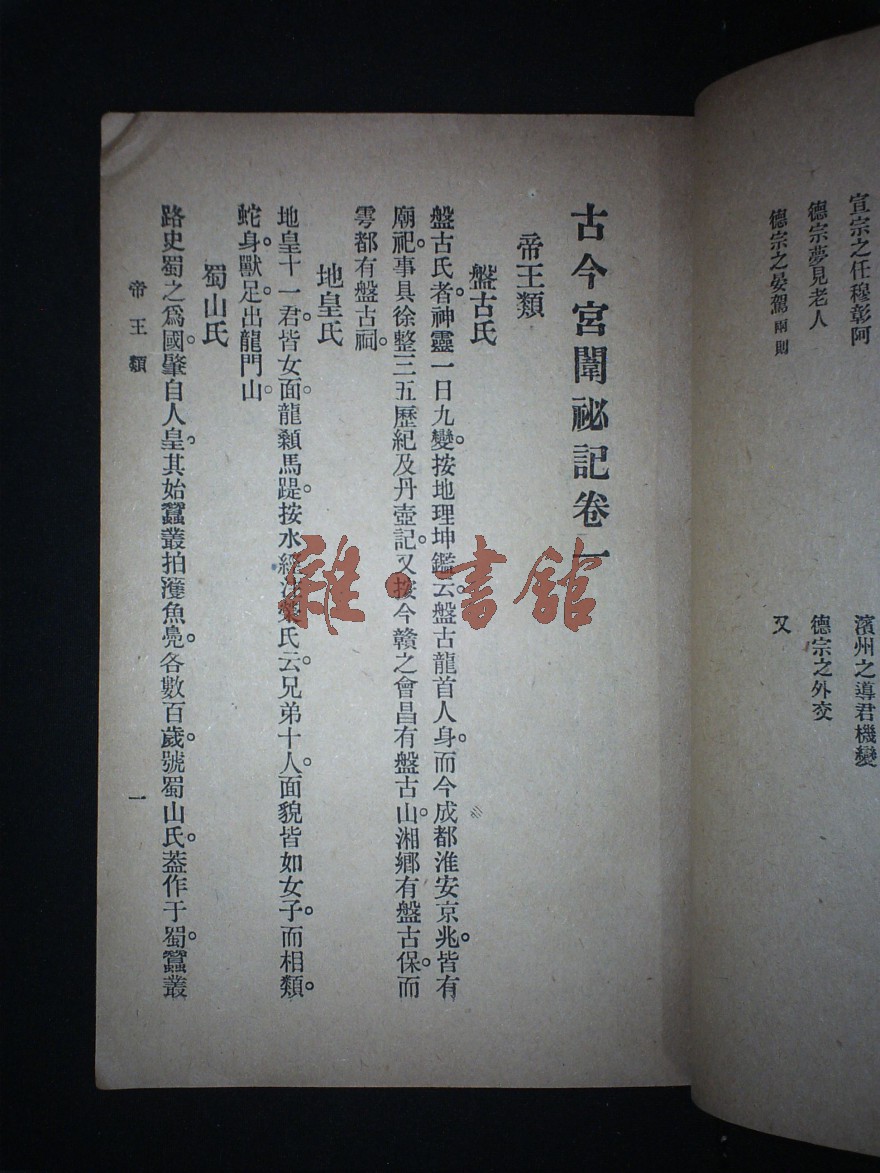 宣宗之任穆彰阿
德宗夢見老人
德宗之晏駕兩則
濱州之導君機變
德宗之外交
又
古今宮闈祕記卷一
帝王類
盤古氏
盤古氏者。神靈一日九變。按地理坤鑑云。盤古龍首人身。而今成都淮安京兆。皆有
廟祀。事具徐整三五歷紀及丹壺記。又按今贛之會昌有盤古山。湘鄉有盤古保。而
雩都有盤古祠。
地皇氏
地皇十一君。皆女面龍顙馬踶。按水經注榮氏云。兄弟十人。面貌皆如女子。而相類。
蛇身。獸足。出龍門山。
蜀山氏
路史蜀之爲國。肇自人皇。其始蠶叢拍濩魚鳧。各數百歲。號蜀山氏。葢作于蜀。蠶叢
帝王類
一
雜·書館